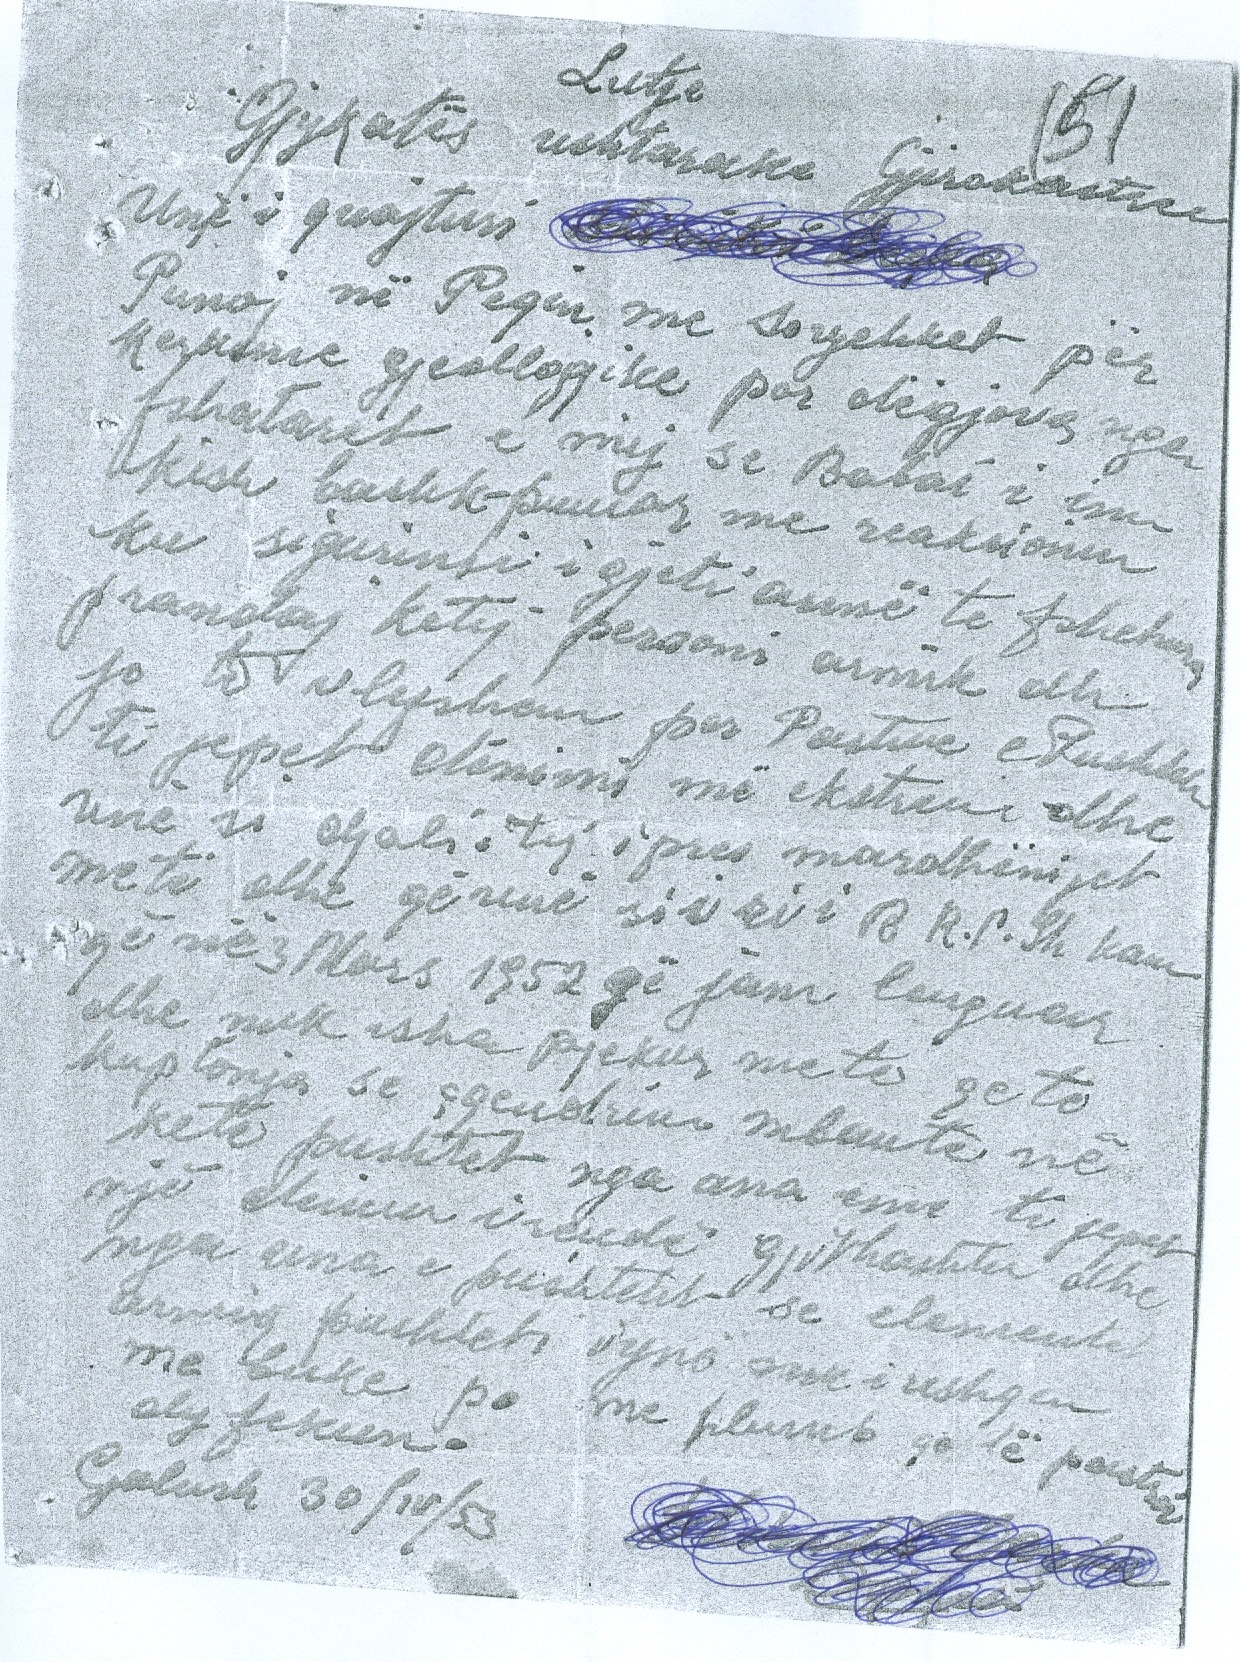 Lutje
151
Gjykatës ushtarake Gjirokastrë
Unë i quajturi
Punoj në Peqin me sorjehket për
kerkime gjeollogjike por digjova nga
fshataret e mij se Babai i im
kish bashk-punuar me reaksionin
ku sigurimi i gjeti armë te fshehura
prandaj ketij personi armik dhe
jo të vlejshem per Partine e Pushtetin
ti jepet dënimi më ekstrem dhe
unë si djali i tij i pres mardhënijet
me te dhe që unë si i ri i B.R.P.Sh kam
që në 3 Mars 1952 që jam larguar
dhe nuk isha pjekur me te qe te
kuptonja se qendrim mbante në
kete pushtet nga ana ime ti jepet
një denim i rendë gjithashtu dhe
nga ana e pushtetit se elementa
armiq pushteti i ynë nuk i ushqen
me buke po me plumb që të pastroj
dyfekun.
Gjalush 30/IV/53